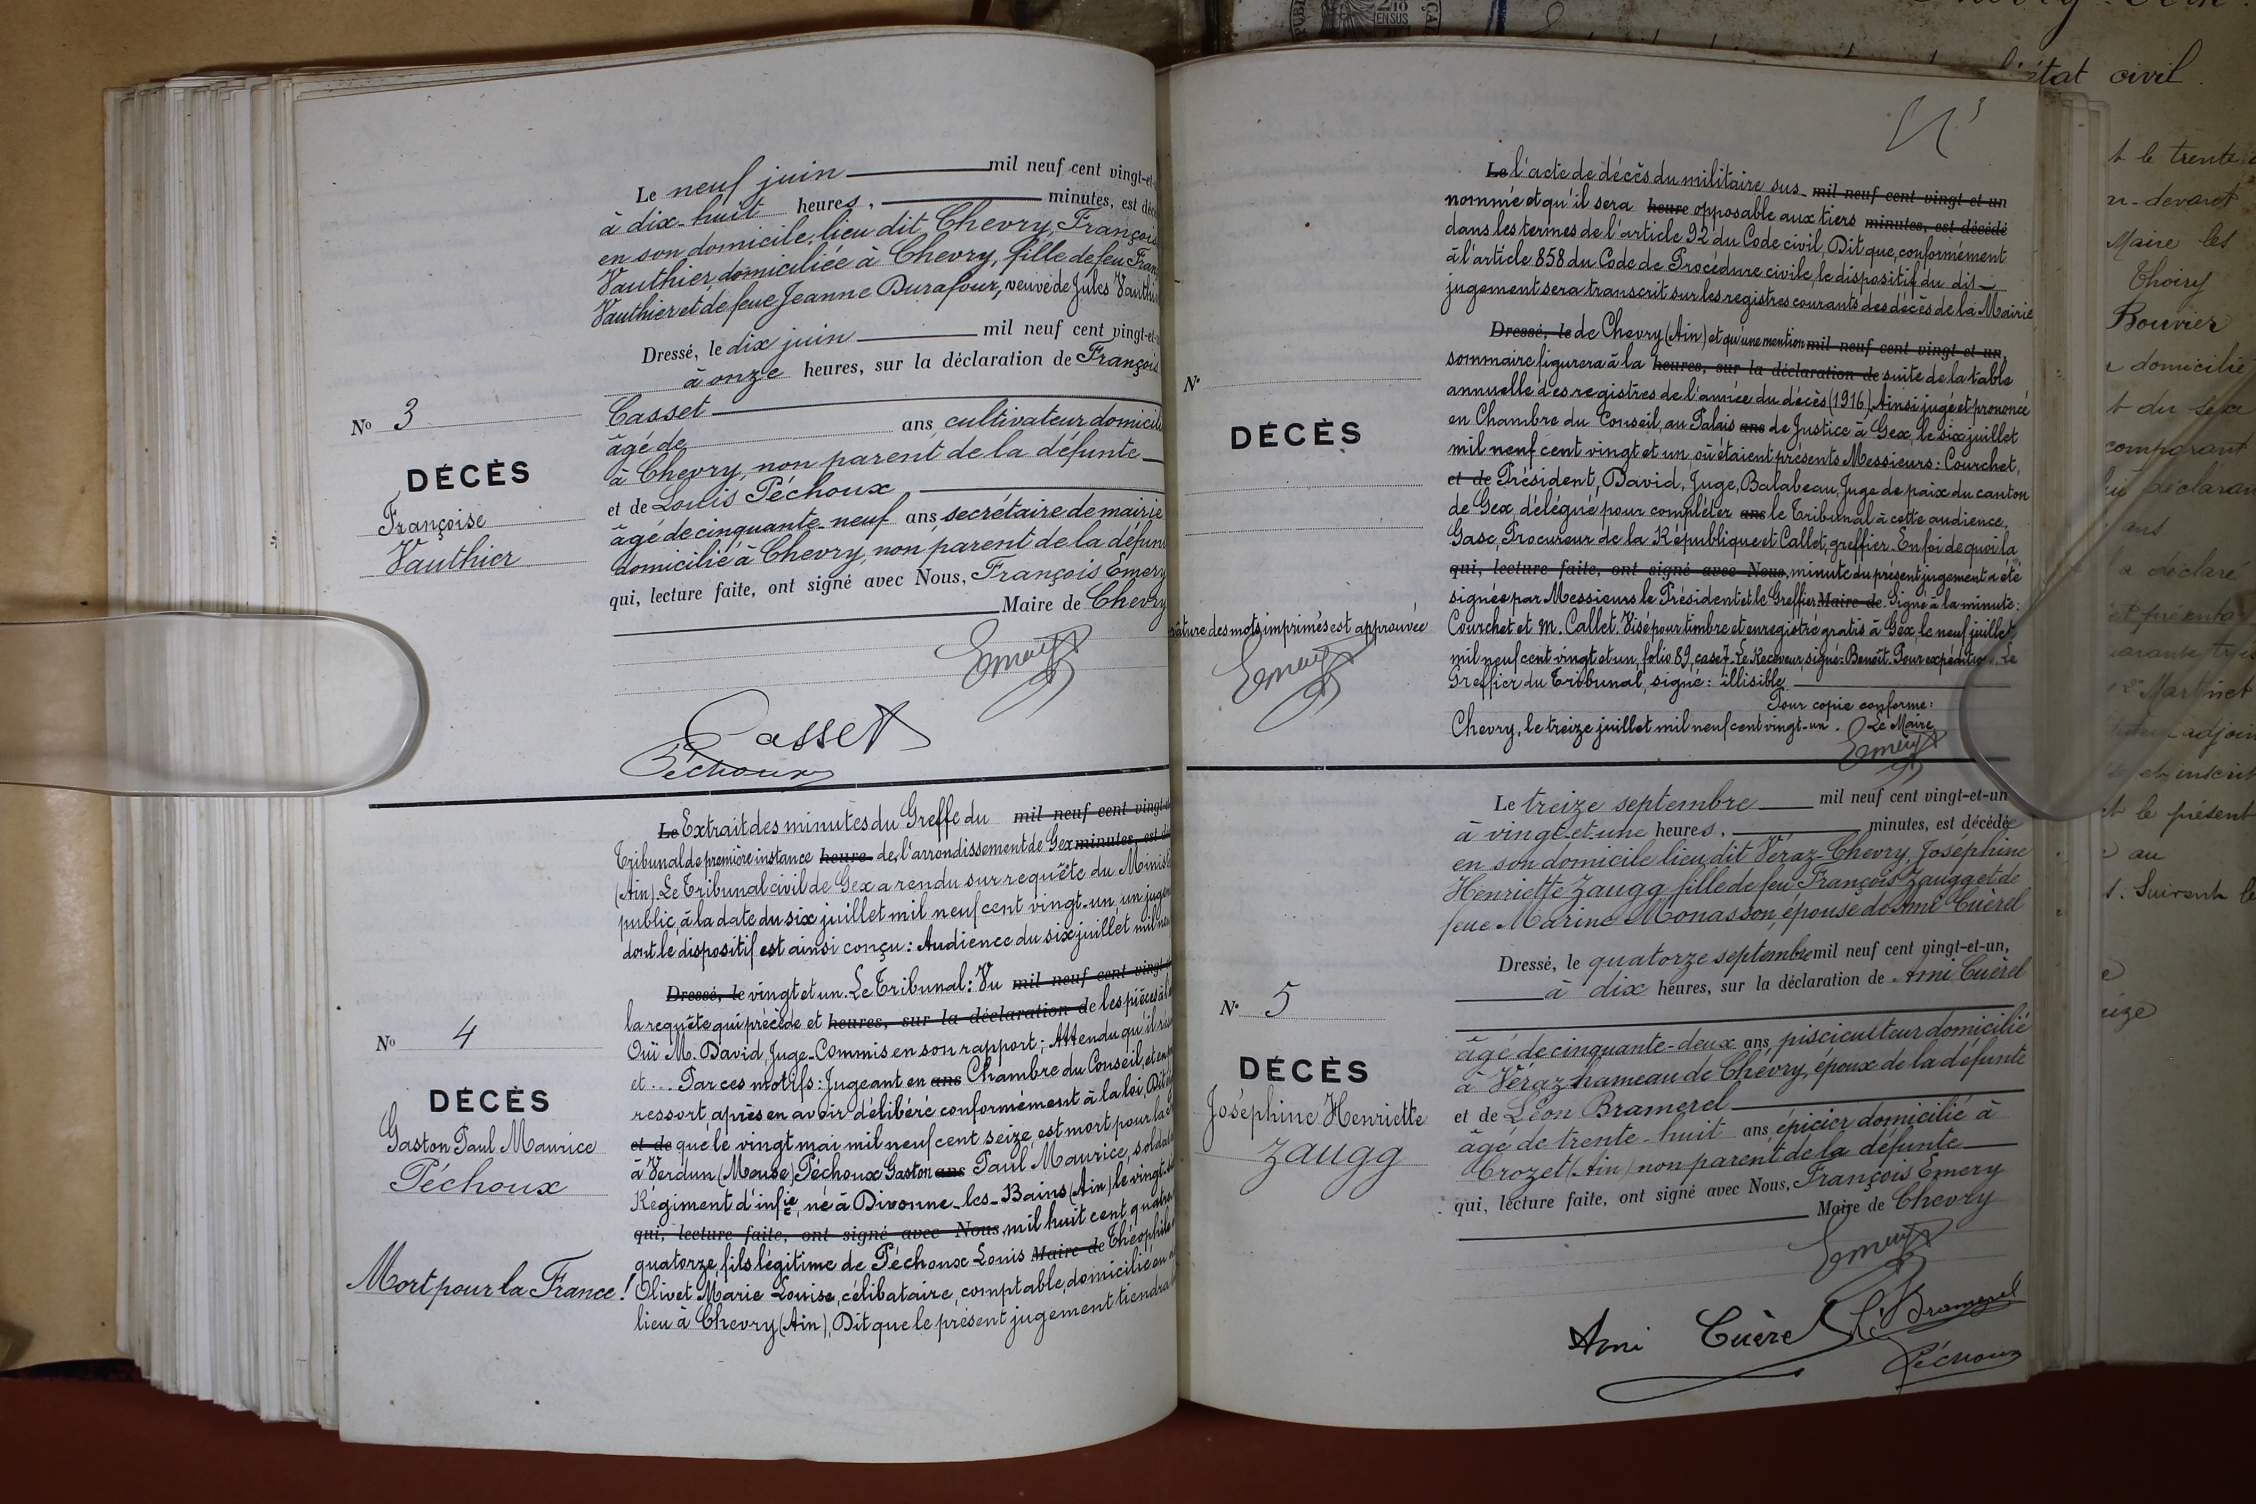 Le neuf juin mil neuf cent vingt-et-
à dix-huit heures, minutes, est décé
en son domicile, lieu dit Chevry, François
Vauthier, domiciliée à Chevry, fille de feu Fran
Vauthier et de feue Jeanne Durafour, veuve de Jules Vauthi
Dressé, le dix juin mil neuf cent vingt-et-
à onze heures, sur la déclaration de François
Casset
âgé de ans, cultivateur domicil
à Chevry, non parent de la défunte
et de Louis Péchoux
âgé de cinquante-neuf ans, secrétaire de mairie
domicilié à Chevry, non parent de la défun
qui, lecture faite, ont signé avec Nous, François Emery
Maire de Chevry
Emery
Casset
Péchoux
No 3
DÉCÈS
Françoise
Vauthier
Le Extrait des minutes du Greffe du mil neuf cent vingt-
Tribunal de première instance heure de l'arrondissement de Gex minutes, est dé
(Ain). Le Tribunal civil de Gex a rendu sur requête du Minist
public, à la date du six juillet mil neuf cent vingt-un, un jugem
dont le dispositif est ainsi conçu: Audience du six juillet mil neu
Dressé, le vingt et un. Le Tribunal: Vu mil neuf cent vingt
la requête qui précède et heures, sur la déclaration de les pièces à l
Ouï M. David, Juge-Commis en son rapport; Attendu qu'il rés
et... Par ces motifs: Jugeant en ans Chambre du Conseil, et en
ressort, après en avoir délibéré conformément à la loi, Dit
et de que le vingt mai mil neuf cent seize, est mort pour la
à Verdun (Meuse) Péchoux Gaston ans Paul Maurice, soldat
Régiment d'infie, né à Divonne-les-Bains (Ain) le vingt-
qui, lecture faite, ont signé avec Nous, mil huit cent quatre
quatorze, fils légitime de Péchoux Louis Maire de Théophile
Olivet Marie Louise, célibataire, comptable, domicilié en
lieu à Chevry (Ain), Dit que le présent jugement tiendra
No 4
DÉCÈS
Gaston Paul Maurice
Péchoux
Mort pour la France!
Le l'acte de décès du militaire sus- mil neuf cent vingt et un
nommé et qu'il sera heure opposable aux tiers minutes, est décédé
dans les termes de l'article 92 du Code civil, Dit que, conformément
à l'article 858 du Code de Procédure civile, le dispositif du dit
jugement sera transcrit sur les registres courants des décès de la Mairie
Dressé, le de Chevry (Ain) et qu'une mention mil neuf cent vingt et un,
sommaire figurera à la heures, sur la déclaration de suite de la table
annuelle des registres de l'année du décès (1916). Ainsi jugé et prononcé
en Chambre du Conseil, au Palais ans de Justice à Gex, le six juillet
mil neuf cent vingt et un, où étaient présents Messieurs: Courchet,
et de Président, David, Juge, Balabeau, Juge de paix du canton
de Gex, délégué pour compléter ans le Tribunal à cette audience,
Gasc, Procureur de la République et Callet, greffier. En foi de quoi la
qui, lecture faite, ont signé avec Nous, minute du présent jugement a été
signée par Messieurs le Président et le Greffier. Maire de Signé à la minute:
Courchet et M. Callet. Visé pour timbre et enregistré gratis à Gex, le neuf juillet
mil neuf cent vingt et un, folio 89, case 7. Le Receveur, signé: Benoît. Pour expédition. Le
Greffier du Tribunal, signé: illisible
Pour copie conforme:
Chevry, le treize juillet mil neuf cent vingt-un. Le Maire
Emery
No
DÉCÈS
rature des mots imprimés est approuvée
Emery
Le treize septembre mil neuf cent vingt-et-un
à vingt et une heures, minutes, est décédée
en son domicile lieu dit Véraz-Chevry, Joséphine
Henriette Zaugg fille de feu François Zaugg et de
feue Marine Monasson, épouse de Ami Cuèrel
Dressé, le quatorze septembre mil neuf cent vingt-et-un,
à dix heures, sur la déclaration de Ami Cuèrel
âgé de cinquante-deux ans, pisciculteur domicilié
à Véraz hameau de Chevry, époux de la défunte
et de Léon Bramerel
âgé de trente-huit ans, épicier domicilié à
Crozet (Ain) non parent de la défunte
qui, lecture faite, ont signé avec Nous, François Emery
Maire de Chevry
Emery
L. Bramerel
Ami Cuèrel
Péchoux
No 5
DÉCÈS
Joséphine Henriette
Zaugg
état civil.
t le trente
Maire les
Thoiry
Bouvier
domicilié
t du sexe
comparant
déclaran
ans
a déclaré
Martinet
adjoin
et inscrit
t le présent
au
Suivent le